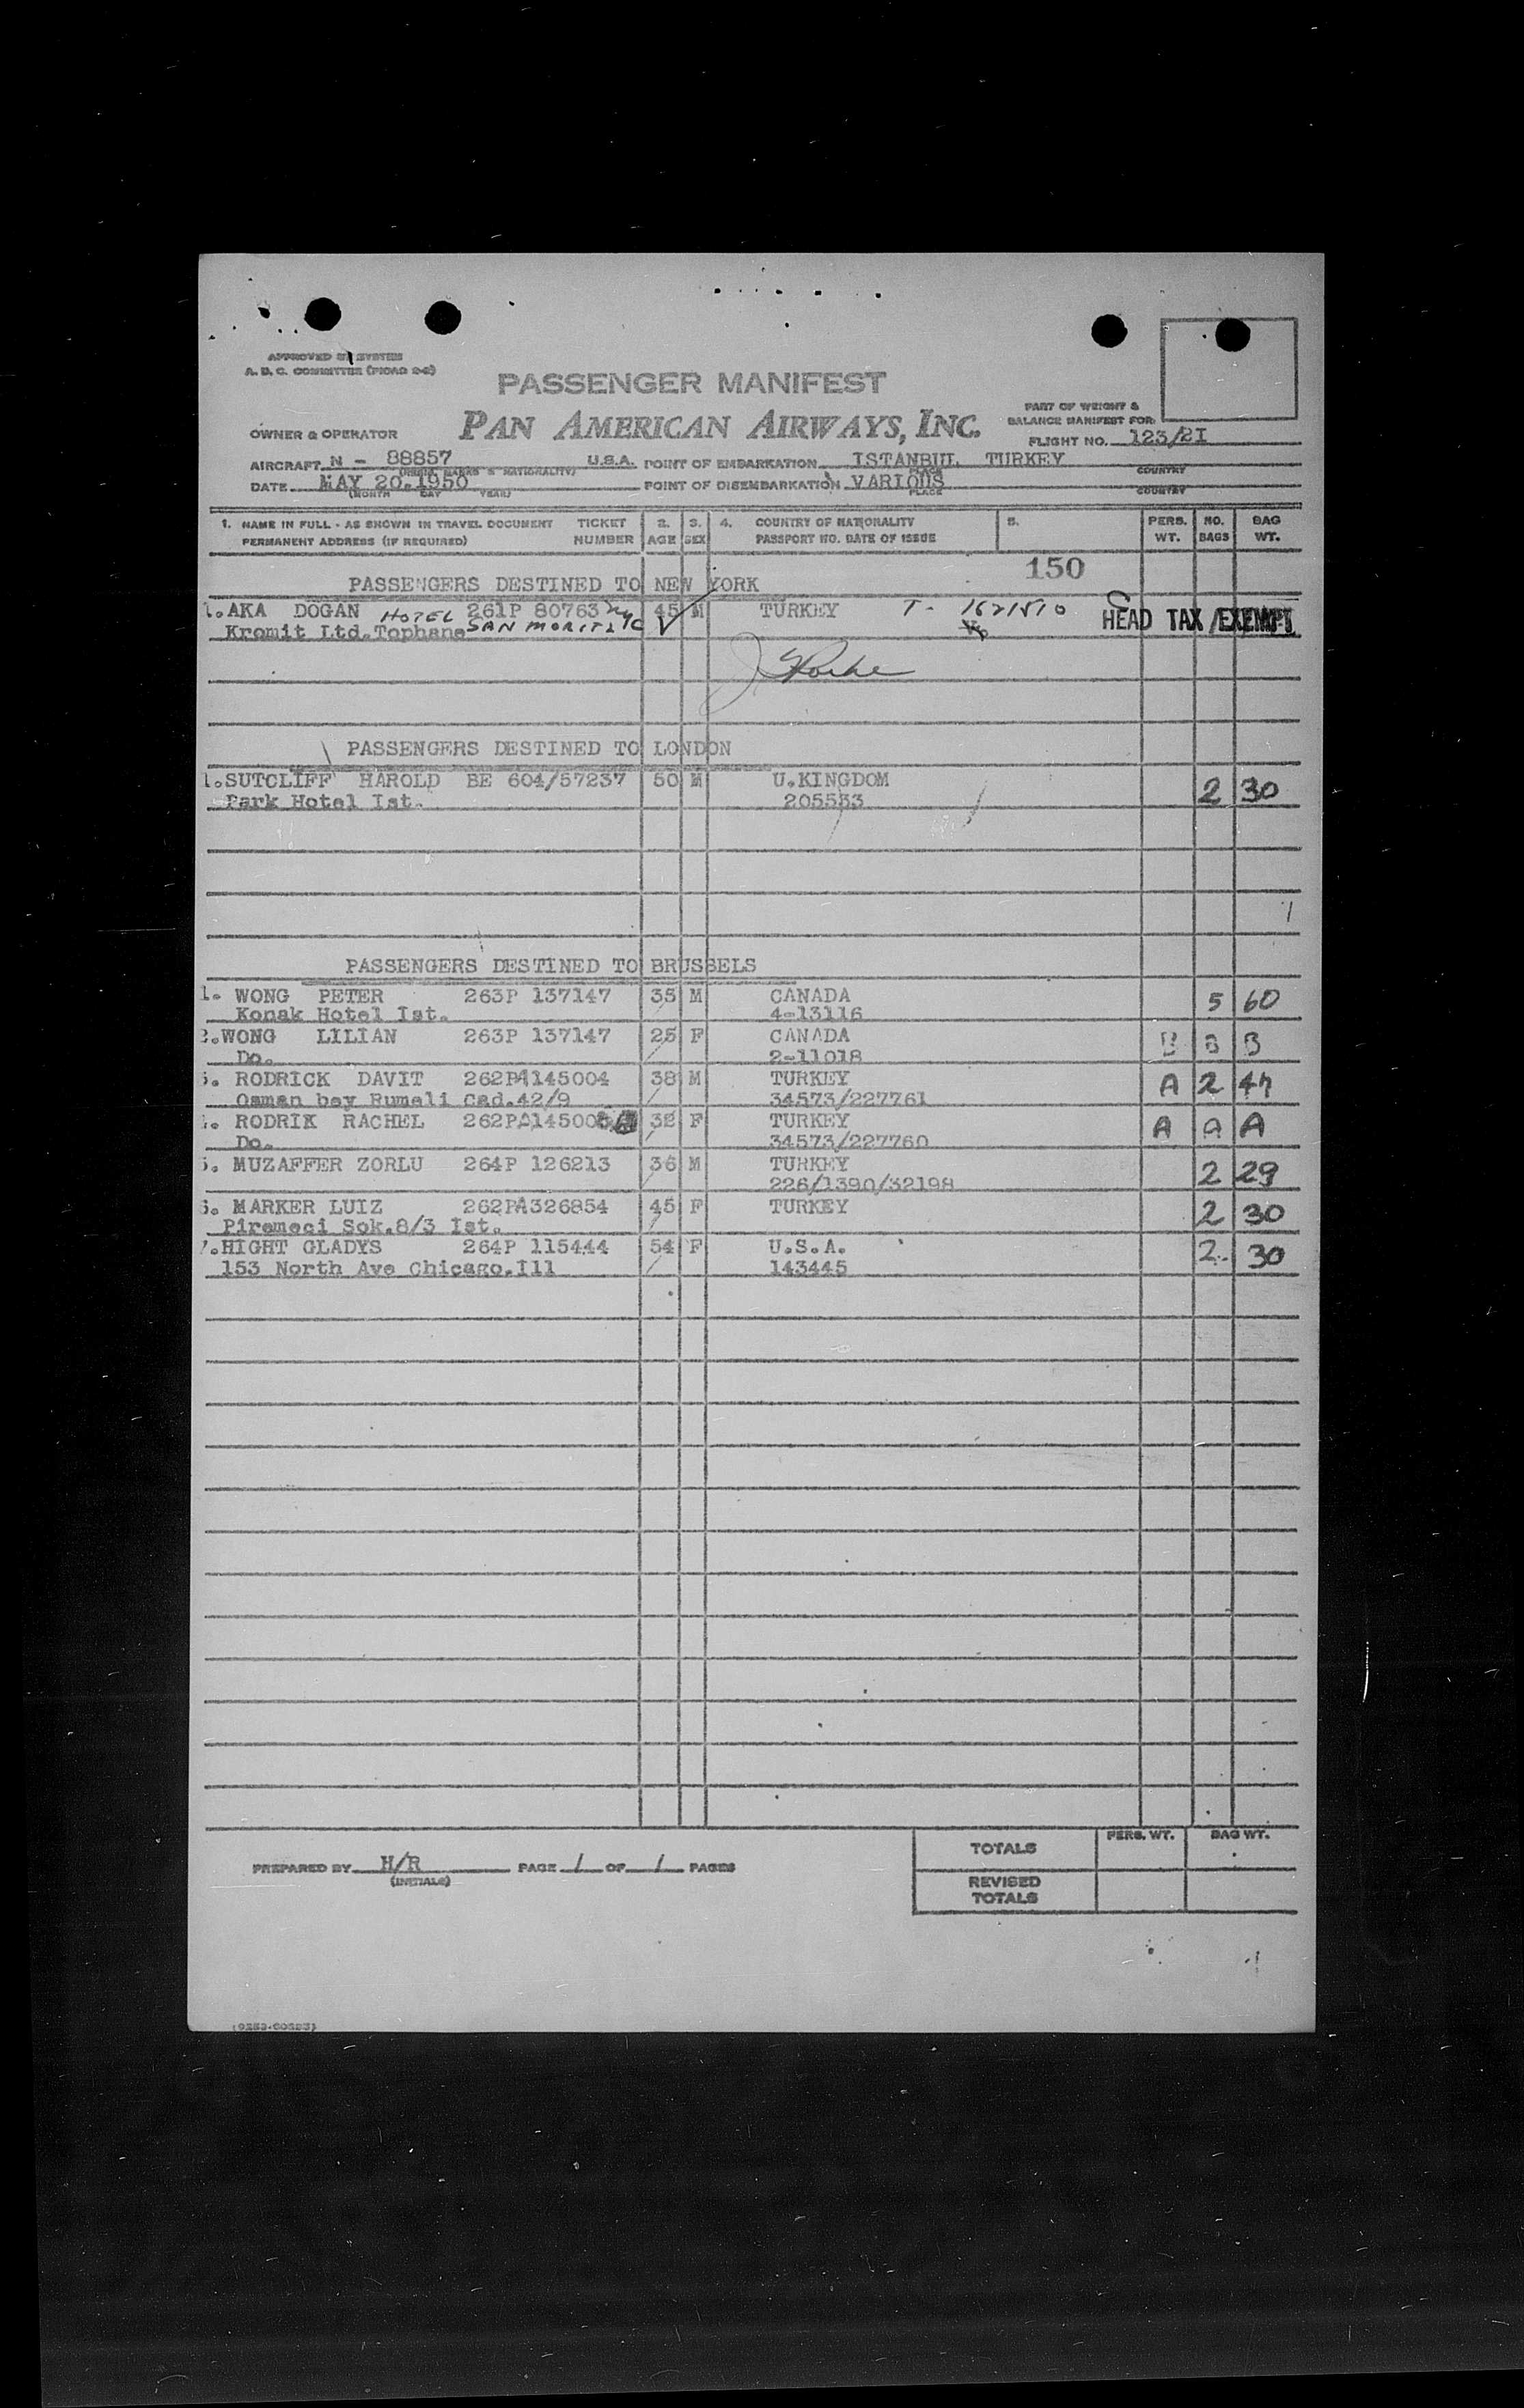 APPROVED BY SYSTEM
A. B. C. COMMITTEE (PICAO 2-2)
PASSENGER MANIFEST
PAN AMERICAN AIRWAYS, INC.
PART OF WEIGHT &
BALANCE MANIFEST FOR:
OWNER & OPERATOR
FLIGHT NO. 123/2I
AIRCRAFT N - 88857 U.S.A. POINT OF EMBARKATION ISTANBUL TURKEY
MARKS & NATIONALITY) PLACE COUNTRY
DATE MAY 20.1950 POINT OF DISEMBARKATION VARIOUS
(MONTH DAY YEAR) PLACE COUNTRY
1. NAME IN FULL - AS SHOWN IN TRAVEL DOCUMENT TICKET 2. 3. 4. COUNTRY OF NATIONALITY 5. PERS. NO. BAG
PERMANENT ADDRESS (IF REQUIRED) NUMBER AGE SEX PASSPORT NO. DATE OF ISSUE WT. BAGS WT.
150
PASSENGERS DESTINED TO NEW YORK
1.AKA DOGAN HOTEL 261P 80763 45 M TURKEY T- HEAD TAX /EXEMPT
Kromit Ltd.Tophane SAN MORITZ
PASSENGERS DESTINED TO LONDON
1.SUTCLIFF HAROLD BE 604/57237 50 M U.KINGDOM
Park Hotel Ist. 205553 2 30
PASSENGERS DESTINED TO BRUSSELS
1. WONG PETER 263P 137147 35 M CANADA 5 60
Konak Hotel Ist. 4-13116
2.WONG LILIAN 263P 137147 25 F CANADA B B B
Do. 2-11018
3. RODRICK DAVIT 262PA145004 38 M TURKEY A 2 47
Osman bey Rumeli Cad.42/9 34573/227761
4. RODRIK RACHEL 262PA145005 32 F TURKEY A A A
Do. 34573/227760
5. MUZAFFER ZORLU 264P 126213 36 M TURKEY 2 29
226/1390/32198
6. MARKER LUIZ 262PA326854 45 F TURKEY 2 30
Piremeci Sok.8/3 Ist.
7.HIGHT GLADYS 264P 115444 54 F U.S.A. 2 30
153 North Ave Chicago.Ill 143445
PERS. WT. BAG WT.
TOTALS
PREPARED BY H/R PAGE 1 OF 1 PAGES
(INITIALS)
REVISED
TOTALS